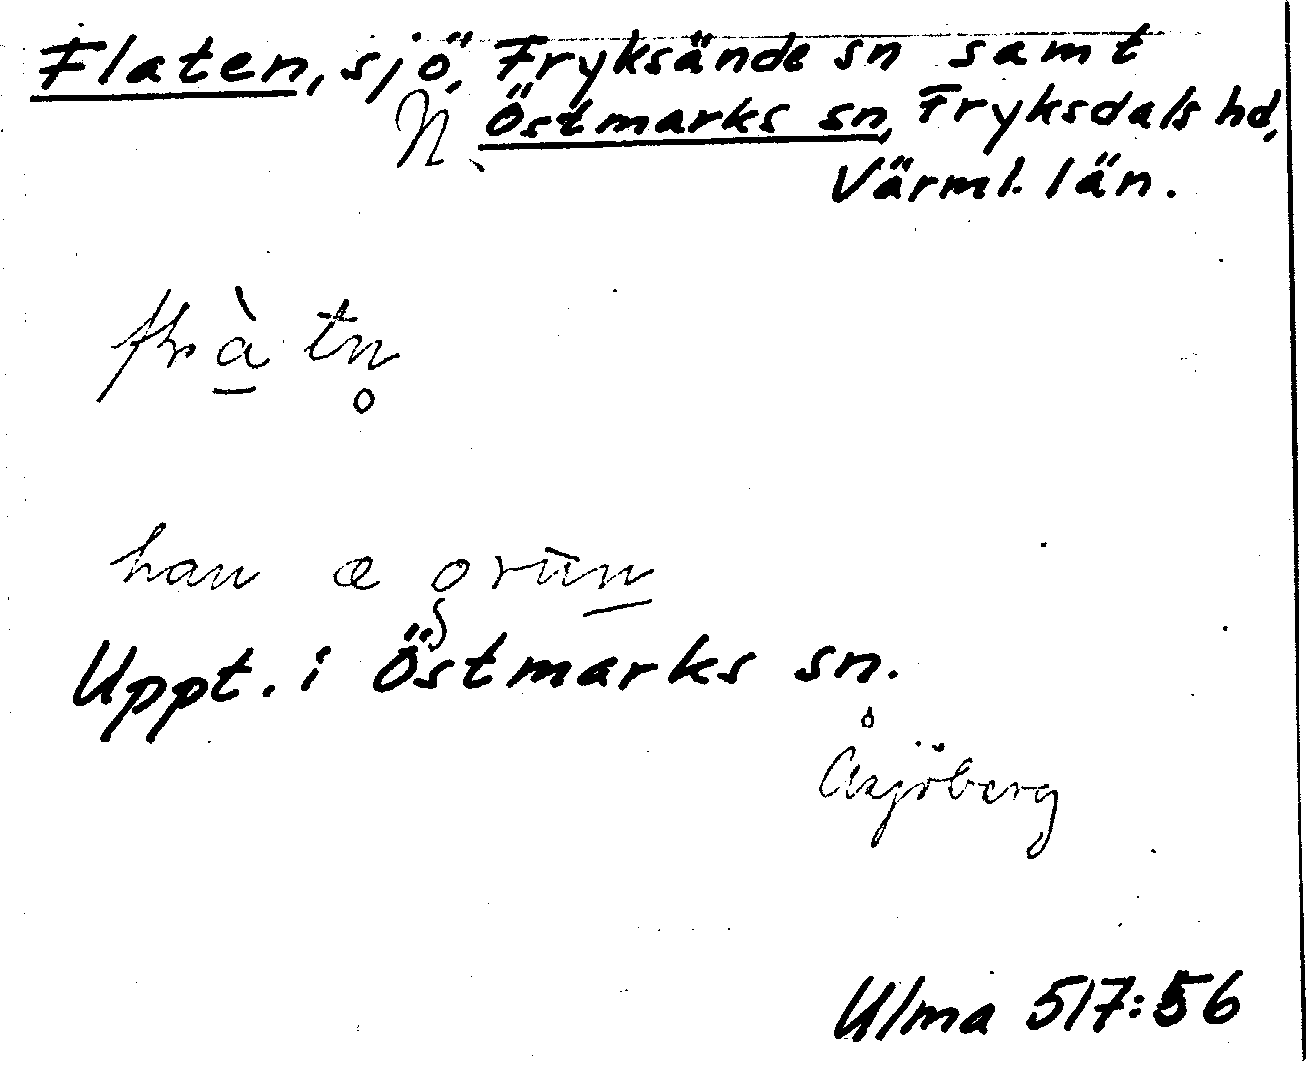 Flaten, sjö, Fryksände sn samt
N. Östmarks sn, Fryksdals hd,
Värml. län.
han æ grūn
Uppt. i Östmarks sn.
Åsjöberg
Ulma 517:56